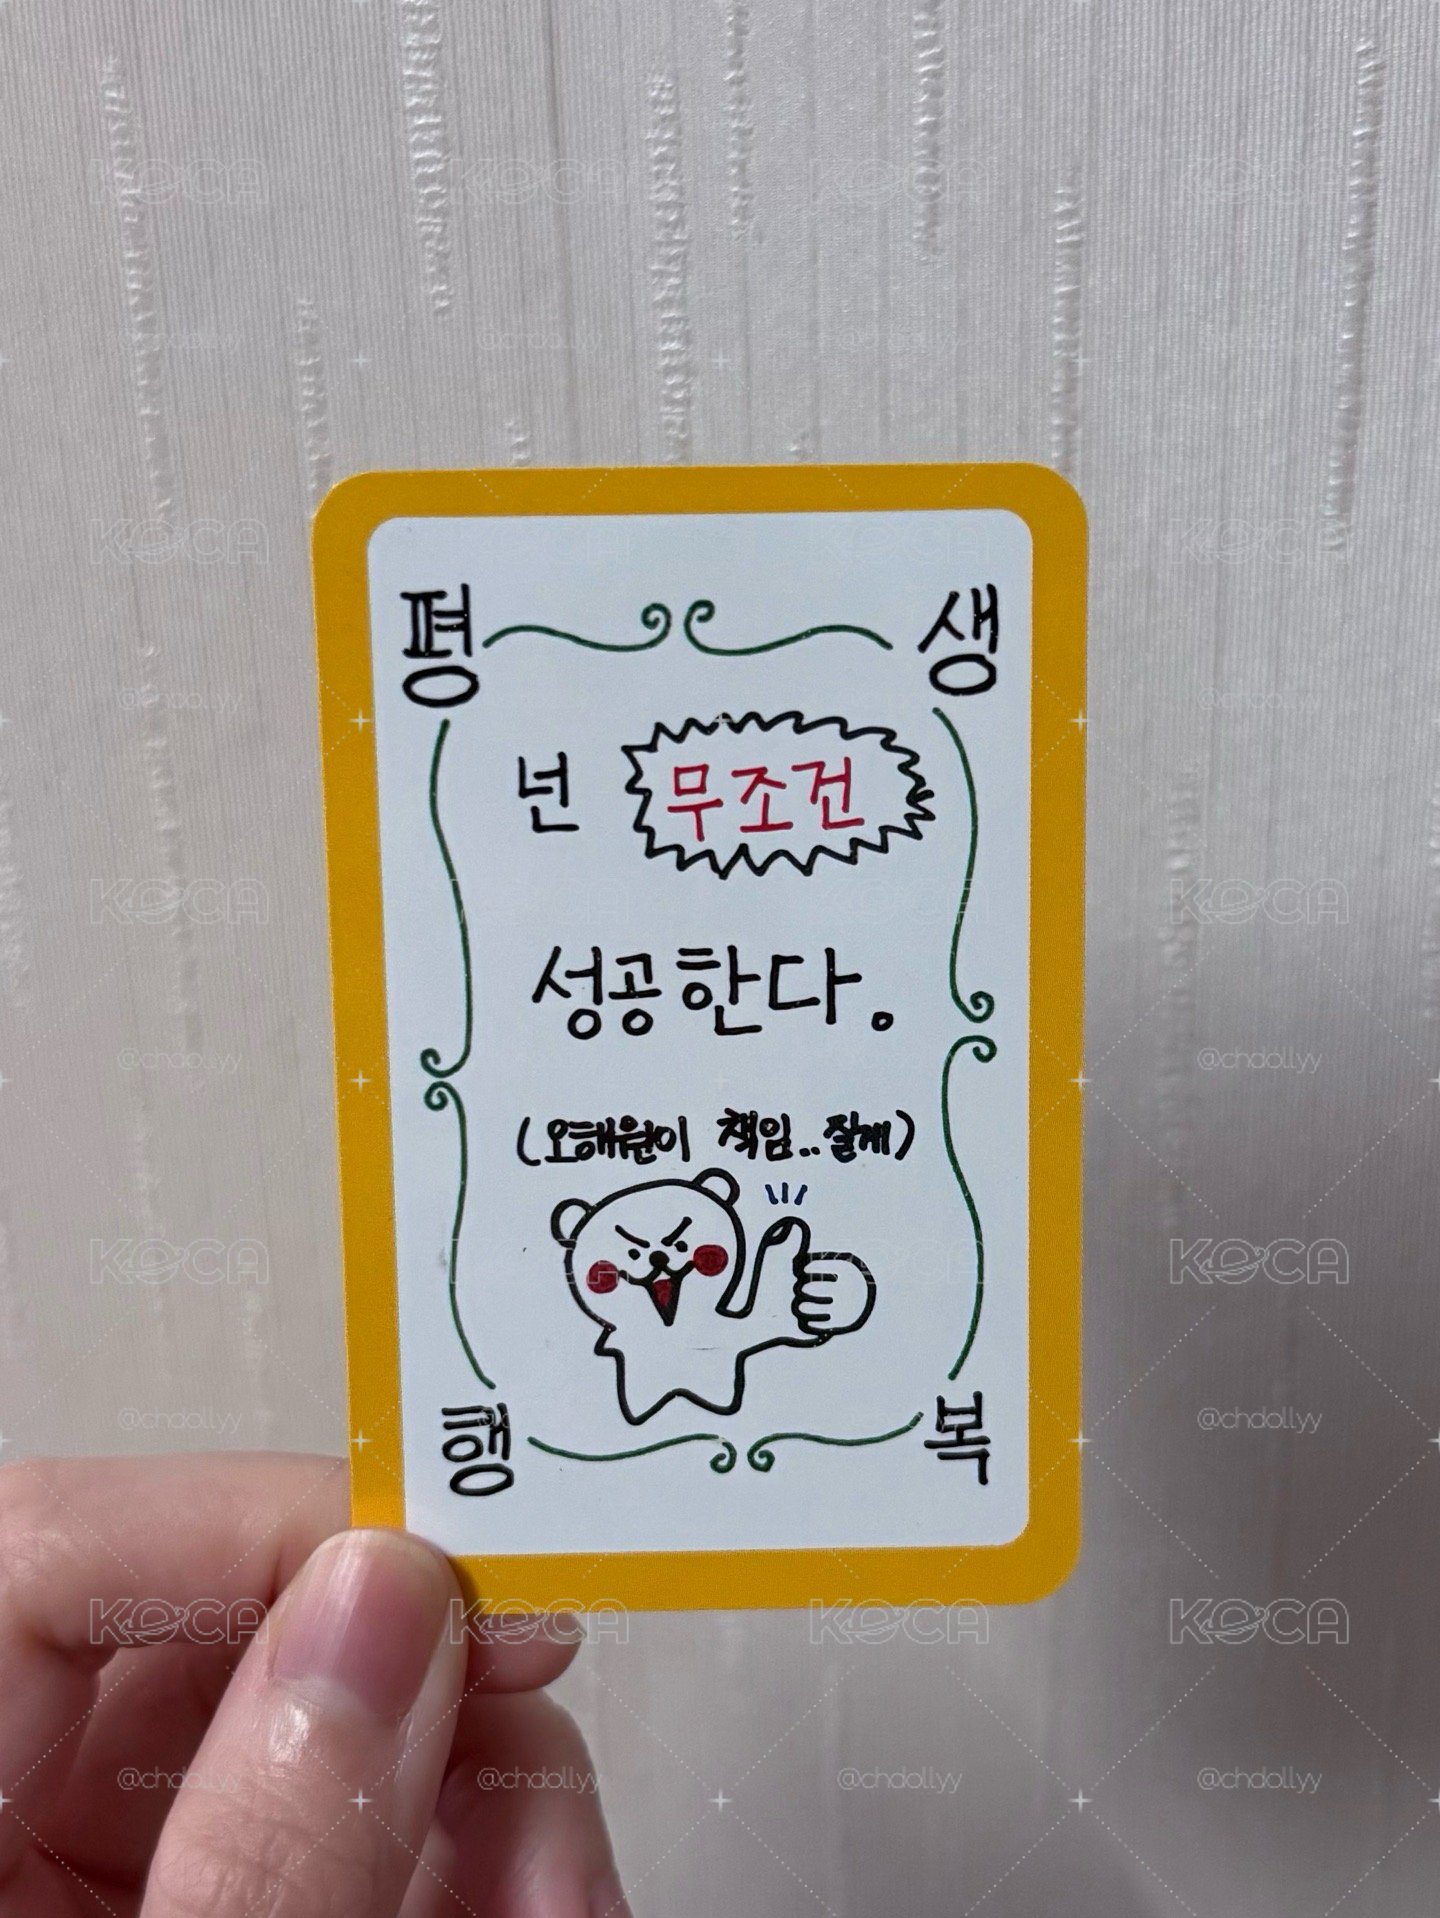 평 생
넌 무조건
성공한다.
(오해원이 책임..질게)
행 복
KOCA
@chdollyy